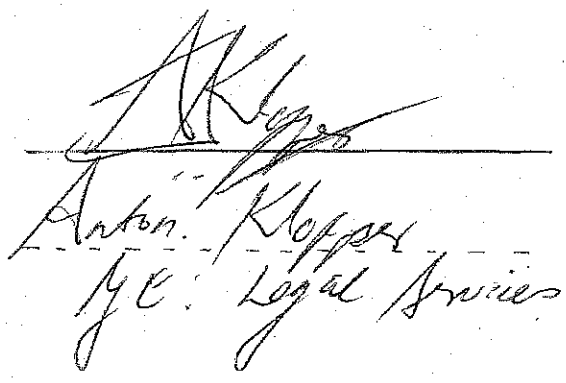 AKlopper
Anton. Klopper
ME: Legal Services